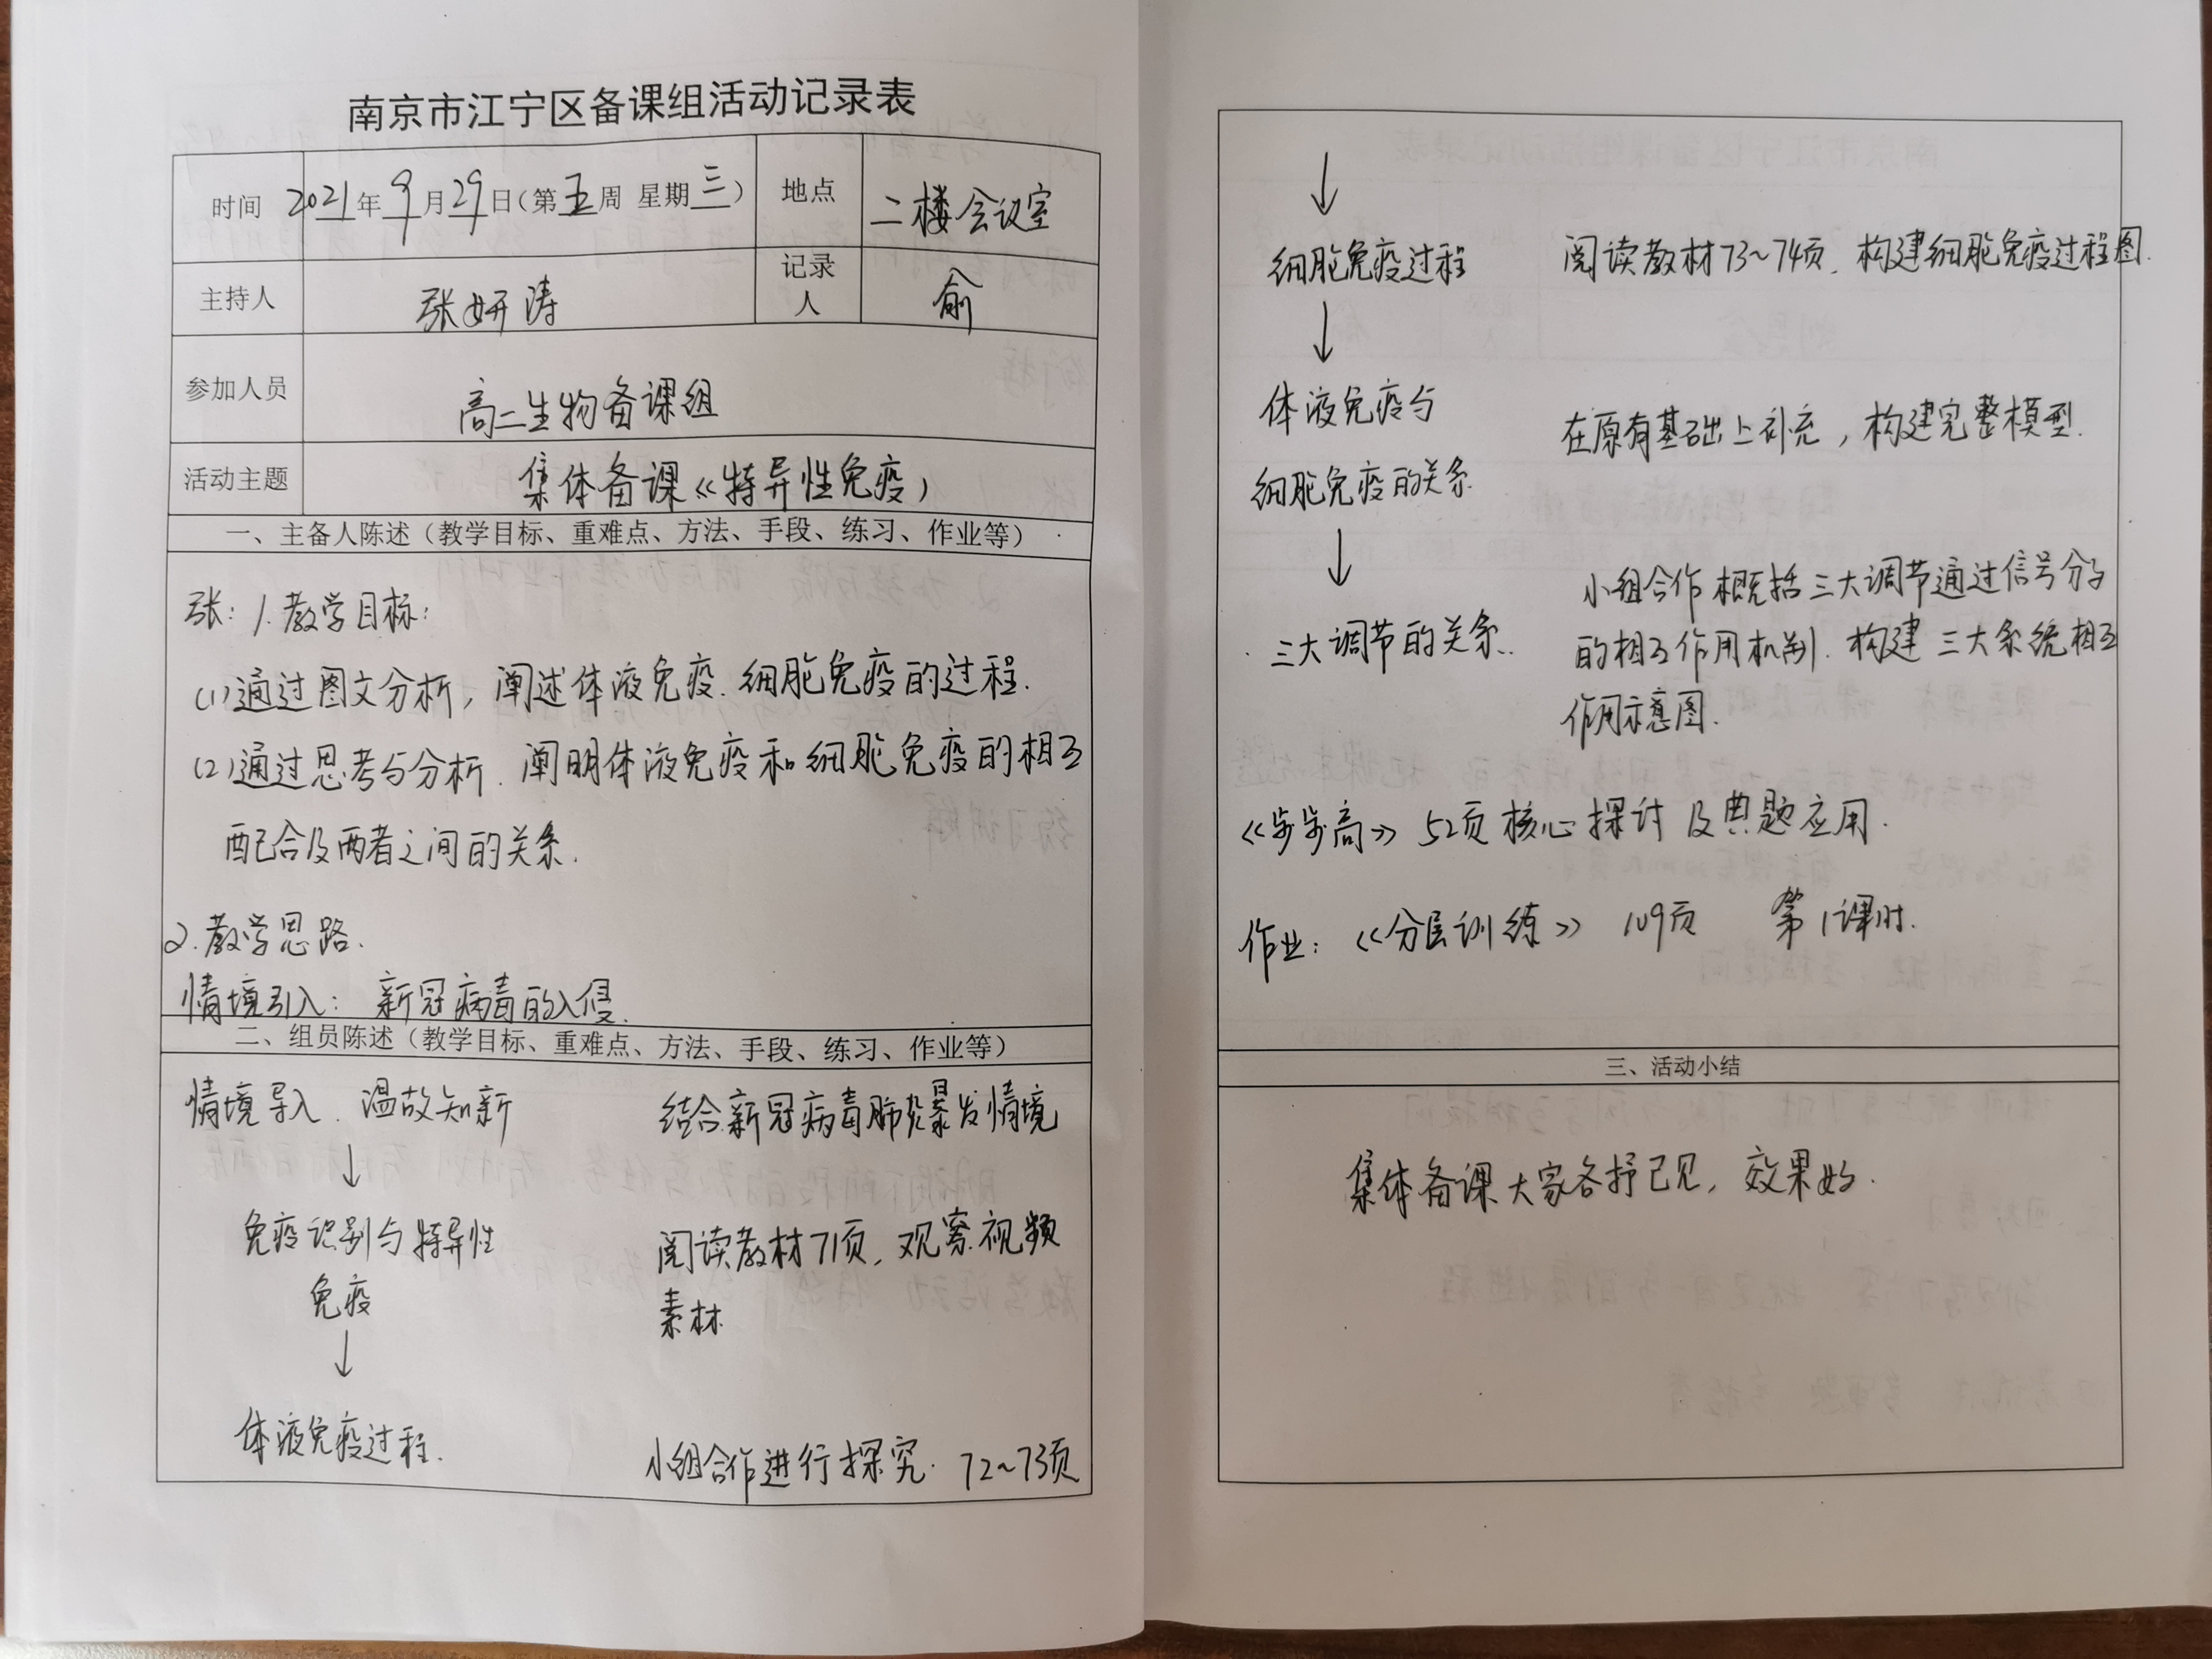 南京市江宁区备课组活动记录表
时间 2021年9月29日(第五周 星期三) 地点 二楼会议室
主持人 张妍涛 记录人 俞
参加人员 高二生物备课组
活动主题 集体备课《特异性免疫》
一、主备人陈述（教学目标、重难点、方法、手段、练习、作业等）
张：1.教学目标：
(1)通过图文分析，阐述体液免疫.细胞免疫的过程.
(2)通过思考与分析.阐明体液免疫和细胞免疫的相互
配合及两者之间的关系.
2.教学思路.
情境引入：新冠病毒的入侵.
二、组员陈述（教学目标、重难点、方法、手段、练习、作业等）
情境导入.温故知新 结合新冠病毒肺炎暴发情境
↓
免疫识别与特异性 阅读教材71页,观察视频
免疫 素材
↓
体液免疫过程. 小组合作进行探究. 72~73页
↓
细胞免疫过程 阅读教材73~74页.构建细胞免疫过程图.
↓
体液免疫与 在原有基础上补充，构建完整模型.
细胞免疫的关系
↓
小组合作概括三大调节通过信号分子
三大调节的关系. 的相互作用机制.构建三大系统相互
作用示意图.
《步步高》52页核心探讨及典题应用.
作业：《分层训练》109页 第1课时.
三、活动小结
集体备课大家各抒己见，效果好.